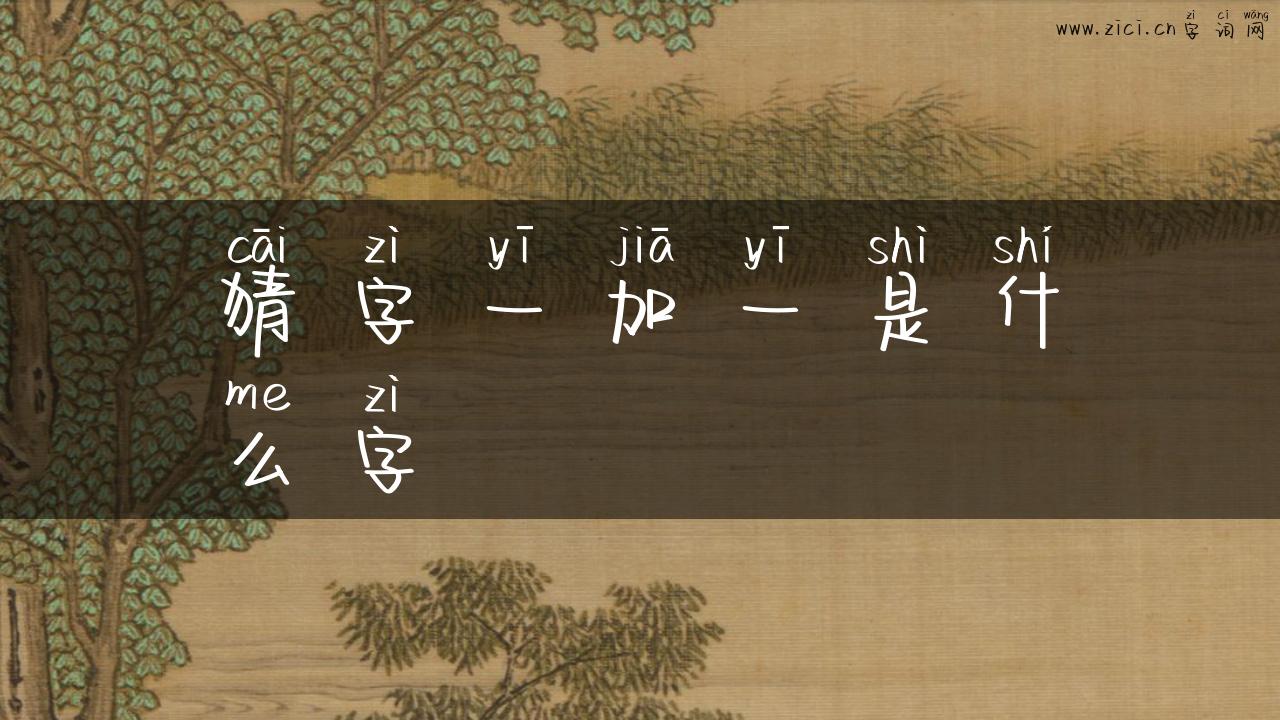 zì cí wǎng
www.zici.cn 字词网
cāi zì yī jiā yī shì shí
猜字一加一是什
me zì
么字